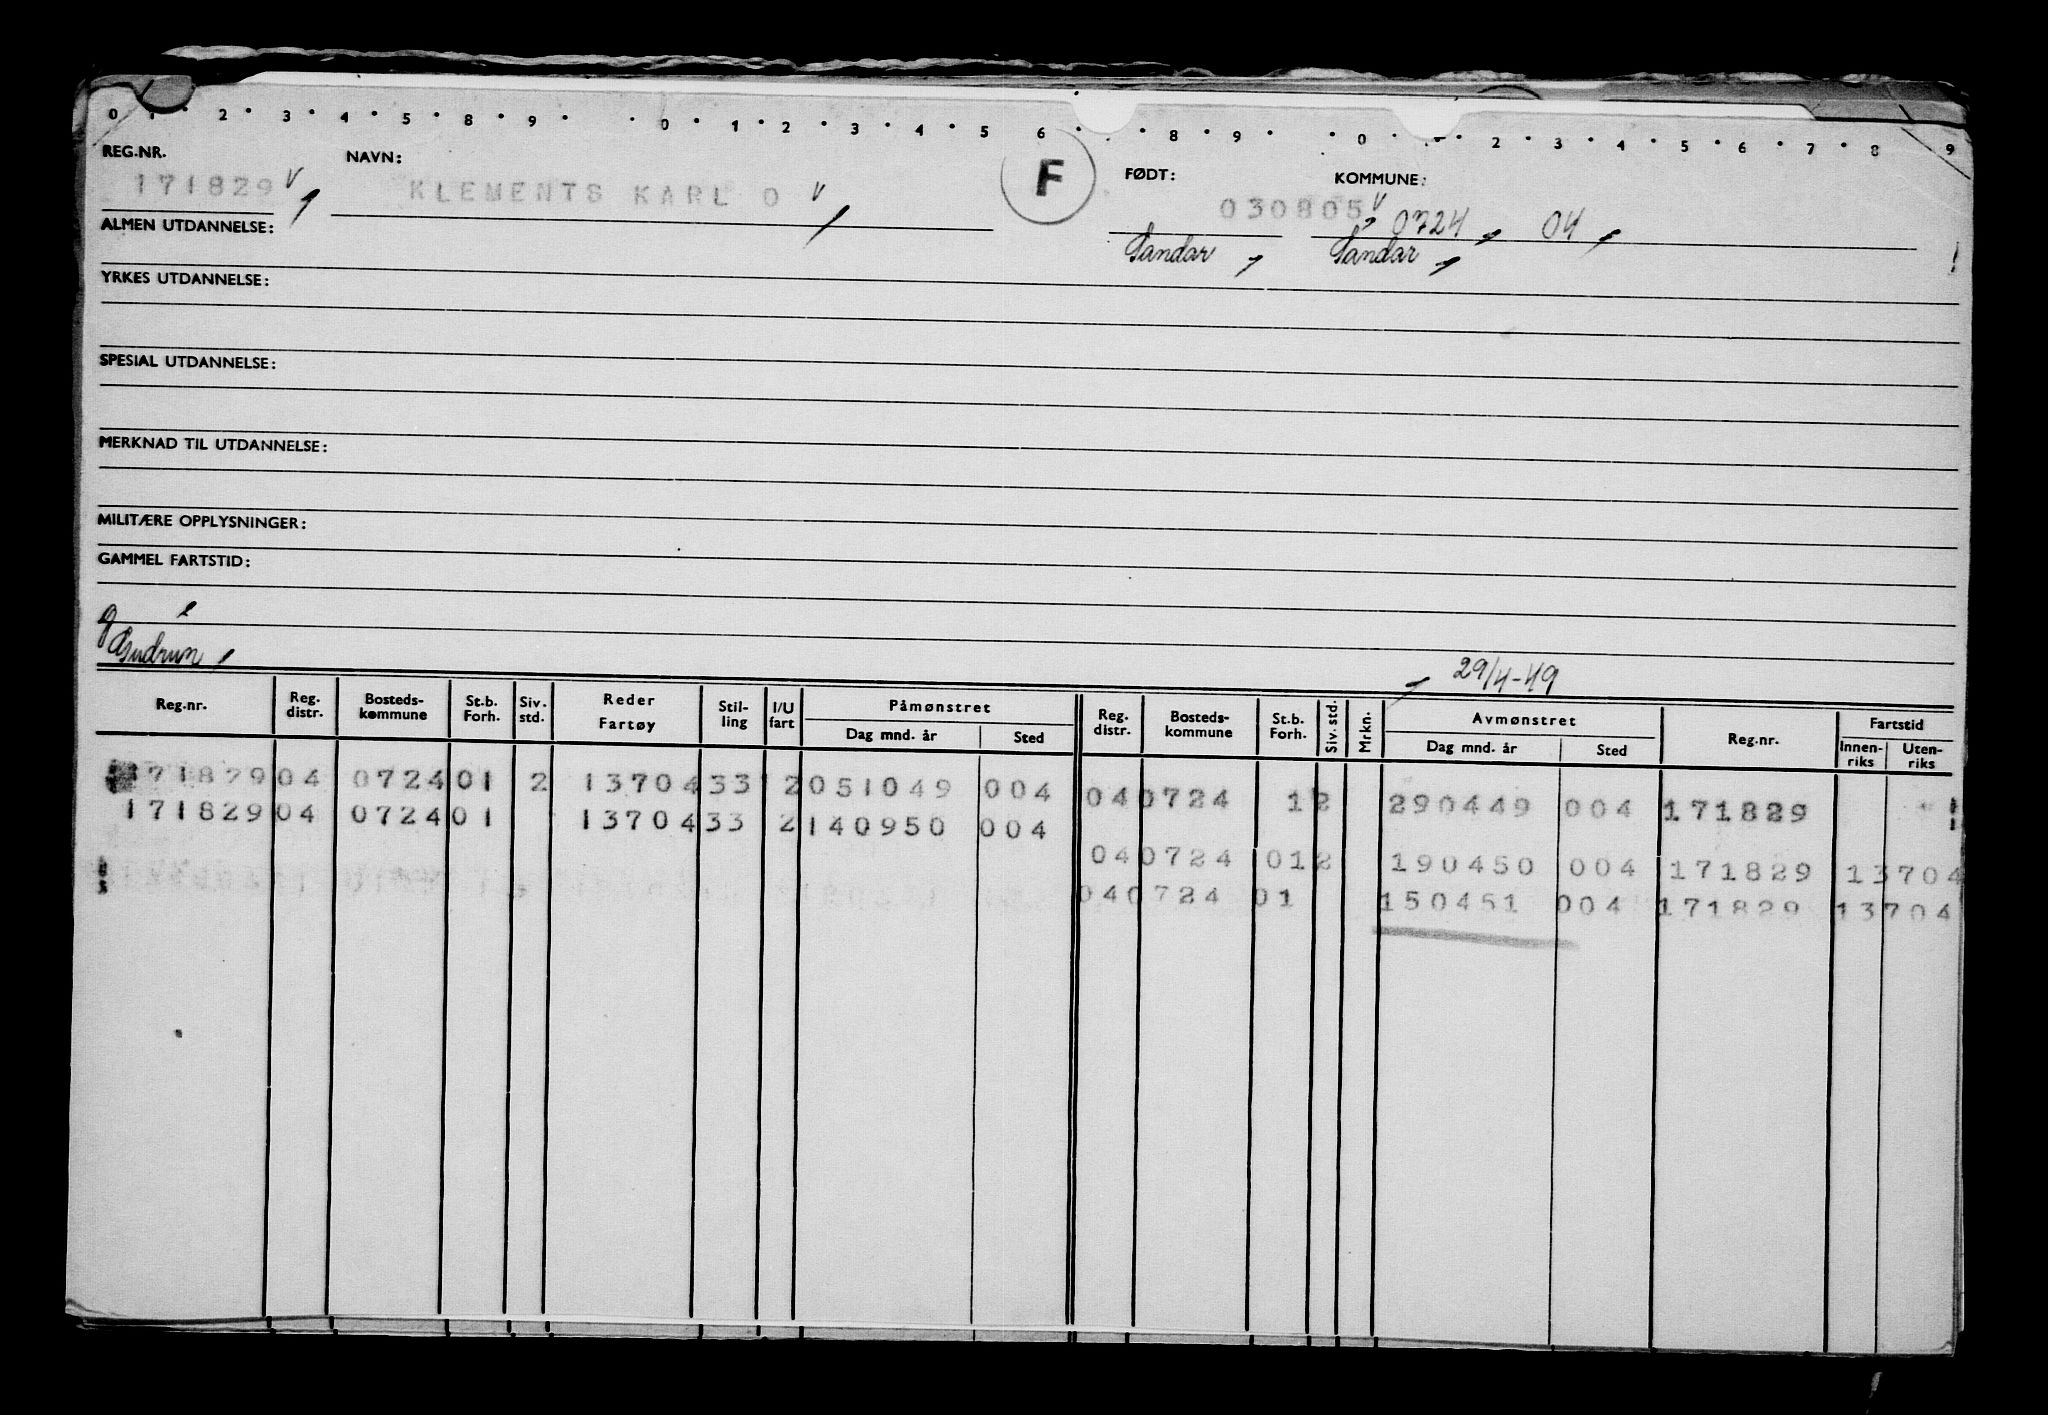 0 1 2 3 4 5 8 9 0 1 2 3 4 5 6 8 9 0 2 3 4 5 6 7 8 9
REG.NR. NAVN: F FØDT: KOMMUNE:
171829 KLEMENTS KARL O 030805 0724 04
ALMEN UTDANNELSE: Sandar Sandar
YRKES UTDANNELSE:
SPESIAL UTDANNELSE:
MERKNAD TIL UTDANNELSE:
MILITÆRE OPPLYSNINGER:
GAMMEL FARTSTID:
g
Gudrun
29/4-49
Reg.nr. Reg. distr. Bosteds-kommune St.b. Forh. Siv. std. Reder Fartøy Stil-ling I/U fart Påmønstret Reg. distr. Bosteds-kommune St.b. Forh. Siv. std. Mrkn. Avmønstret Reg.nr. Fartstid
Dag mnd. år Sted Dag mnd. år Sted Innen-riks Uten-riks
71829 04 0724 01 2 13704 33 2 051049 004 04 0724 1 2 290449 004 171829
171829 04 0724 01 13704 33 2 140950 004
04 0724 01 2 190450 004 171829 13704
04 0724 01 150451 004 171829 13704